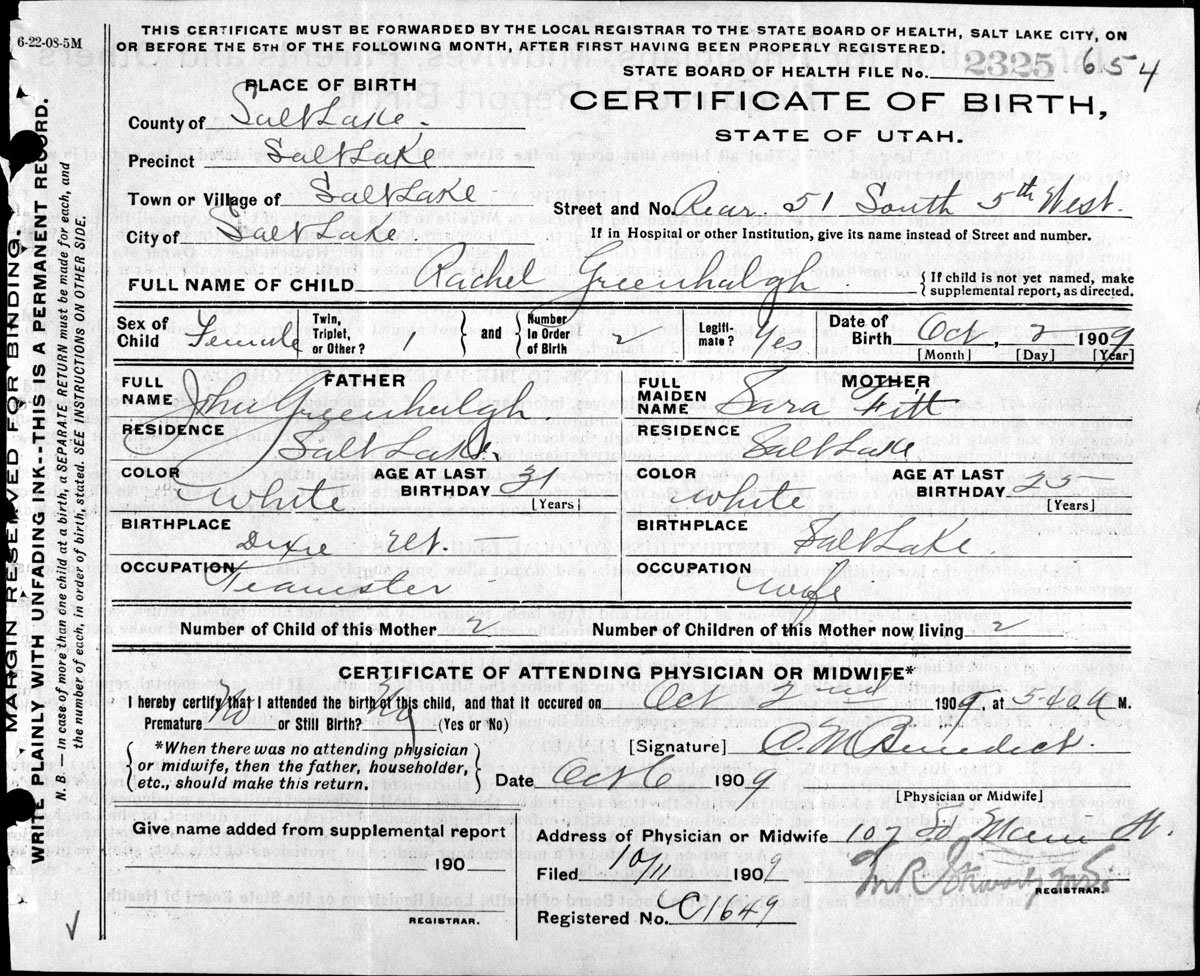 THIS CERTIFICATE MUST BE FORWARDED BY THE LOCAL REGISTRAR TO THE STATE BOARD OF HEALTH, SALT LAKE CITY, ON
OR BEFORE THE 5TH OF THE FOLLOWING MONTH, AFTER FIRST HAVING BEEN PROPERLY REGISTERED.
6-22-08-5M
STATE BOARD OF HEALTH FILE No. 2325 654
PLACE OF BIRTH
CERTIFICATE OF BIRTH,
STATE OF UTAH.
County of Salt Lake.
Precinct Salt Lake
Town or Village of Salt Lake
Street and No. Rear 51 South 5th West.
City of Salt Lake.
If in Hospital or other Institution, give its name instead of Street and number.
FULL NAME OF CHILD Rachel Greenhalgh { If child is not yet named, make supplemental report, as directed.
Sex of Child Female Twin, Triplet, or Other? 1 } and { Number in Order of Birth 2 Legiti-mate? Yes Date of Birth Oct, 2 1909
[Month] [Day] [Year]
FATHER
FULL NAME John Greenhalgh
RESIDENCE Salt Lake.
COLOR White AGE AT LAST BIRTHDAY 31
[Years]
BIRTHPLACE Dixie Ut.
OCCUPATION Teamster
MOTHER
FULL MAIDEN NAME Sara Fitt
RESIDENCE Salt Lake
COLOR White AGE AT LAST BIRTHDAY 25
[Years]
BIRTHPLACE Salt Lake
OCCUPATION Wife
Number of Child of this Mother 2 Number of Children of this Mother now living 2
CERTIFICATE OF ATTENDING PHYSICIAN OR MIDWIFE*
I hereby certify that I attended the birth of this child, and that it occured on Oct 2nd 1909, at 5-40 a M.
Premature No or Still Birth? No (Yes or No)
{ *When there was no attending physician
or midwife, then the father, householder,
etc., should make this return. }
[Signature] C. M. Benedict.
Date Oct 6 1909
[Physician or Midwife]
Give name added from supplemental report
190
REGISTRAR.
Address of Physician or Midwife 107 So Main St.
Filed 10/11 1909
REGISTRAR
Registered No. C1649
MARGIN RESERVED FOR BINDING
WRITE PLAINLY WITH UNFADING INK--THIS IS A PERMANENT RECORD.
N. B. — In case of more than one child at a birth, a SEPARATE RETURN must be made for each, and
the number of each, in order of birth, stated. SEE INSTRUCTIONS ON OTHER SIDE.